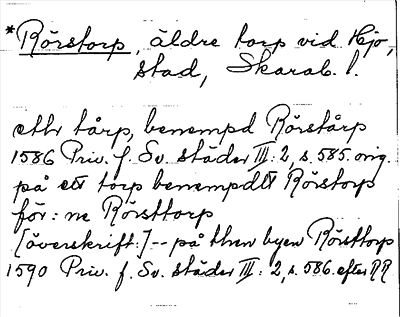 *Rörstorp, äldre torp vid Hjo,
stad, Skarab. l.
ettr tårp, benempd Rörstårp
1586 Priv. f. Sv. städer III: 2, s. 585. orig.
på ett torp benempdtt Rörstorp
för: ne Rörsttorp
[överskrift:] -- på then byen Rörsttorp
1590 Priv. f. Sv. städer III: 2, s. 586. efter RR